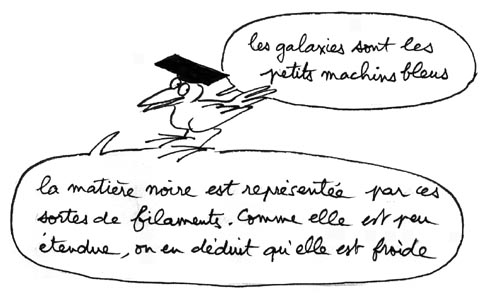 les galaxies sont les
petits machins bleus
la matière noire est représentée par ces
sortes de filaments. Comme elle est peu
étendue, on en déduit qu'elle est froide